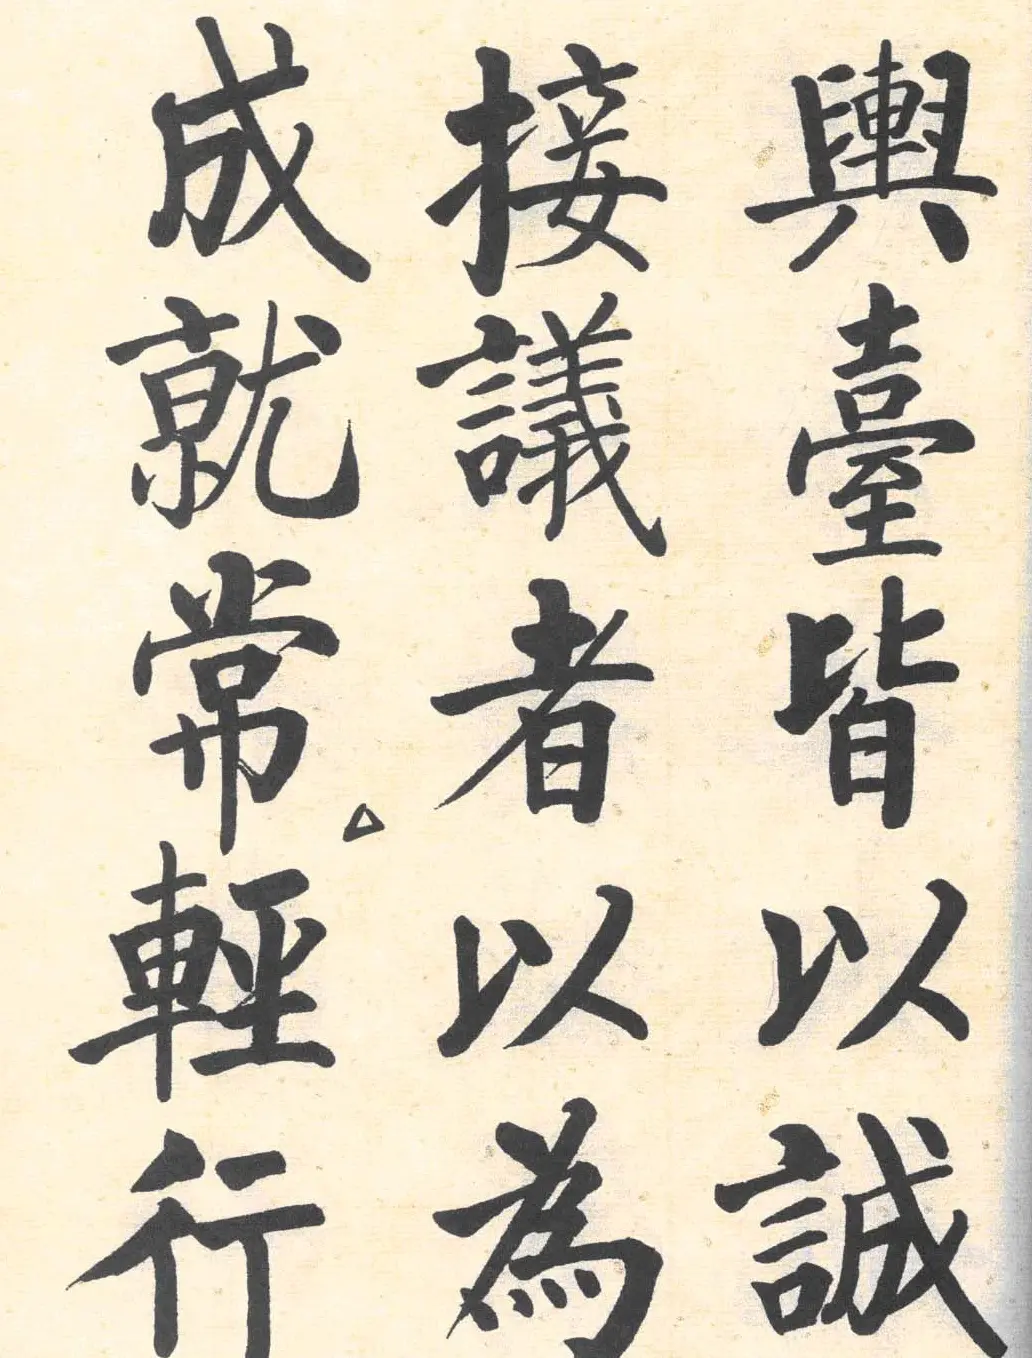 輿臺皆以誠
接議者以為
成就常輕行